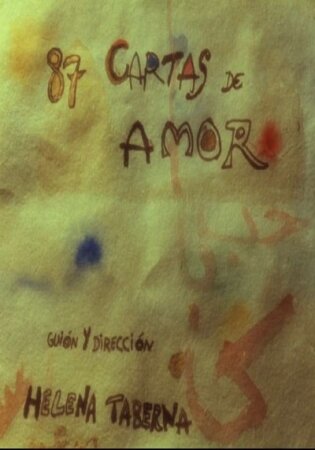 87 CARTAS DE
AMOR
GUIÓN Y DIRECCIÓN
HELENA TABERNA